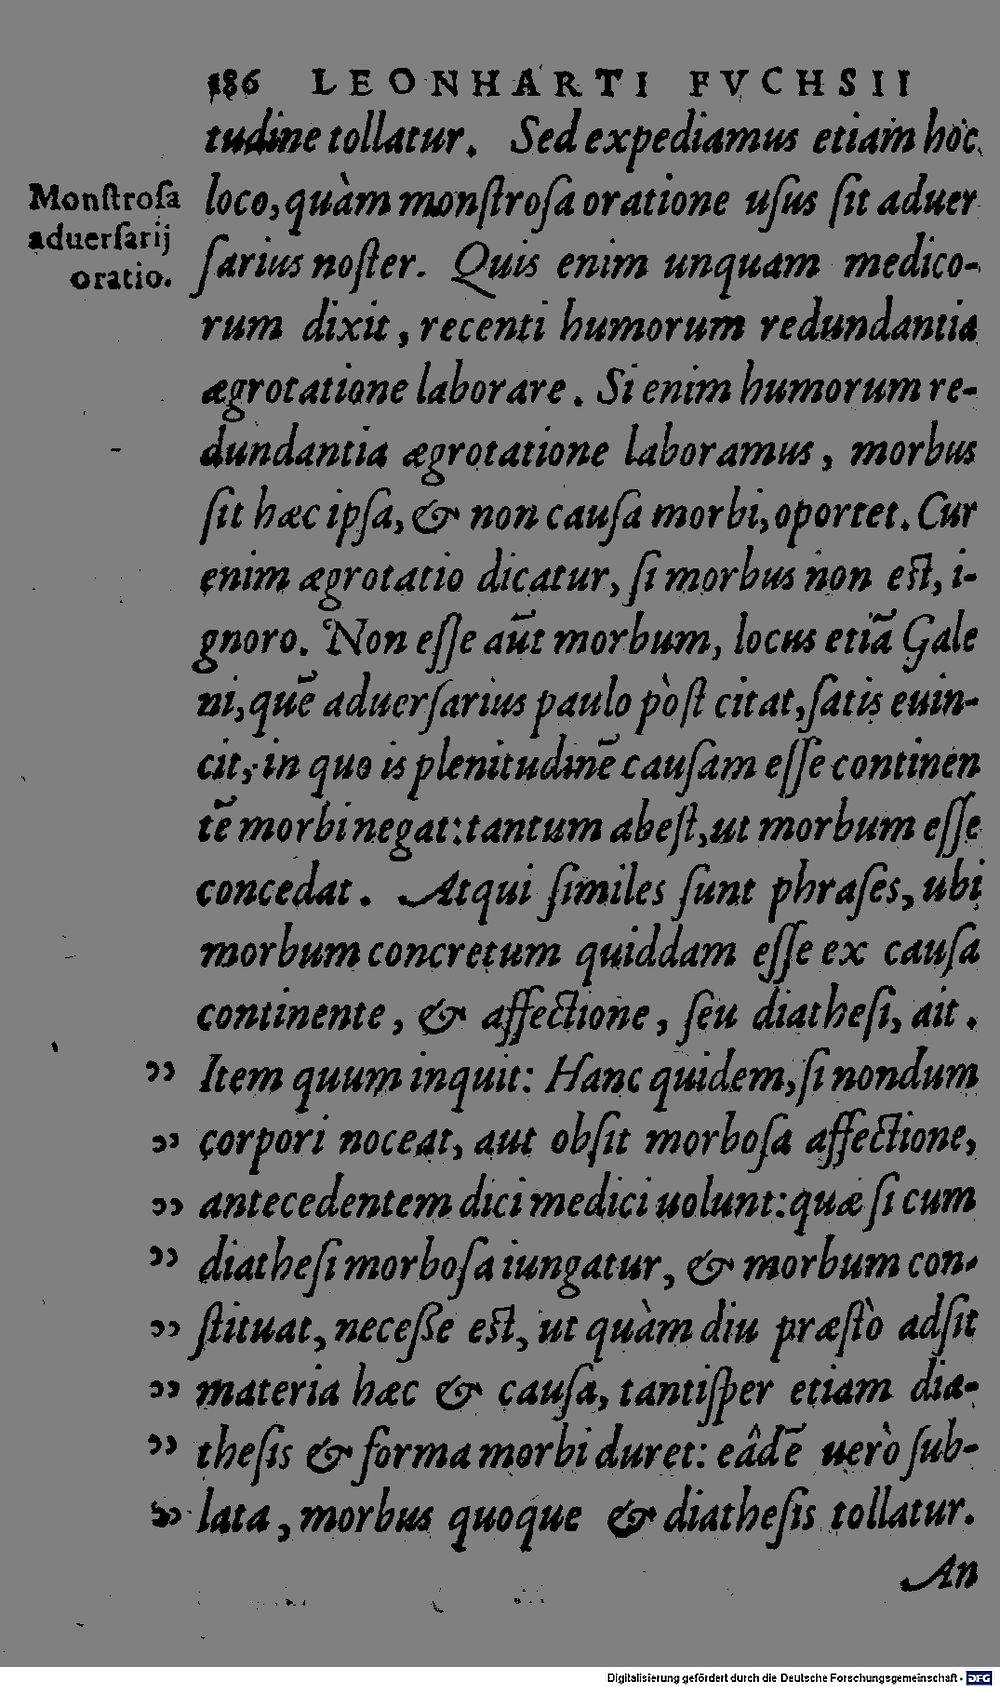 186 LEONHARTI FVCHSII
tudine tollatur. Sed expediamus etiam hoc
Monſtroſa
aduerſarij
oratio.
loco, quàm monſtroſa oratione uſus ſit aduer
ſarius noſter. Quis enim unquam medico-
rum dixit, recenti humorum redundantia
ægrotatione laborare. Si enim humorum re-
dundantia ægrotatione laboramus, morbus
ſit hæc ipſa, & non cauſa morbi, oportet. Cur
enim ægrotatio dicatur, ſi morbus non eſt, i-
gnoro. Non eſſe aūt morbum, locus etiā Gale
ni, quē aduerſarius paulo pòſt citat, ſatis euin-
cit, in quo is plenitudinē cauſam eſſe continen
tē morbi negat: tantum abeſt, ut morbum eſſe
concedat. Atqui ſimiles ſunt phraſes, ubi
morbum concretum quiddam eſſe ex cauſa
continente, & affectione, ſeu diatheſi, ait.
„ Item quum inquit: Hanc quidem, ſi nondum
„ corpori noceat, aut obſit morboſa affectione,
„ antecedentem dici medici uolunt: quæ ſi cum
„ diatheſi morboſa iungatur, & morbum con-
„ ſtituat, neceſſe eſt, ut quàm diu præſtò adſit
„ materia hæc & cauſa, tantiſper etiam dia-
„ theſis & forma morbi duret: eâdē uerò ſub-
„ lata, morbus quoque & diatheſis tollatur.
An
Digitalisierung gefördert durch die Deutsche Forschungsgemeinschaft - DFG